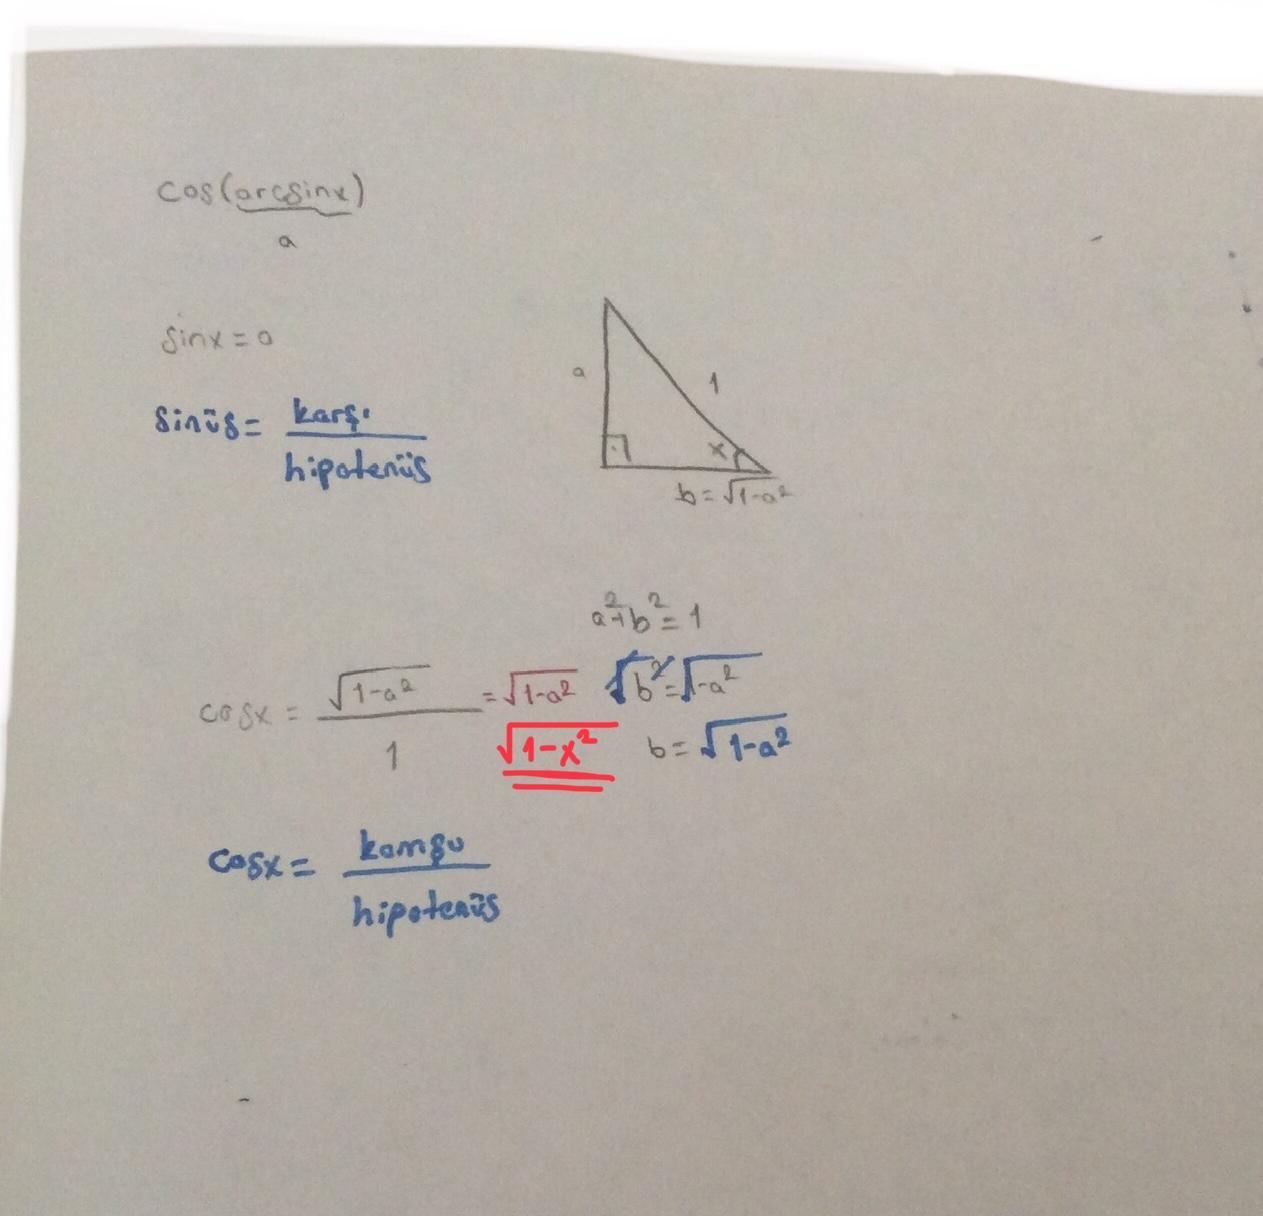 cos(arcsinx)
a
sinx = a
sinüs = karşı / hipotenüs
a
1
x
b = √1-a²
a² + b² = 1
cosx = √1-a² / 1 = √1-a²
√b² = √1-a²
√1-x²
b = √1-a²
cosx = komşu / hipotenüs